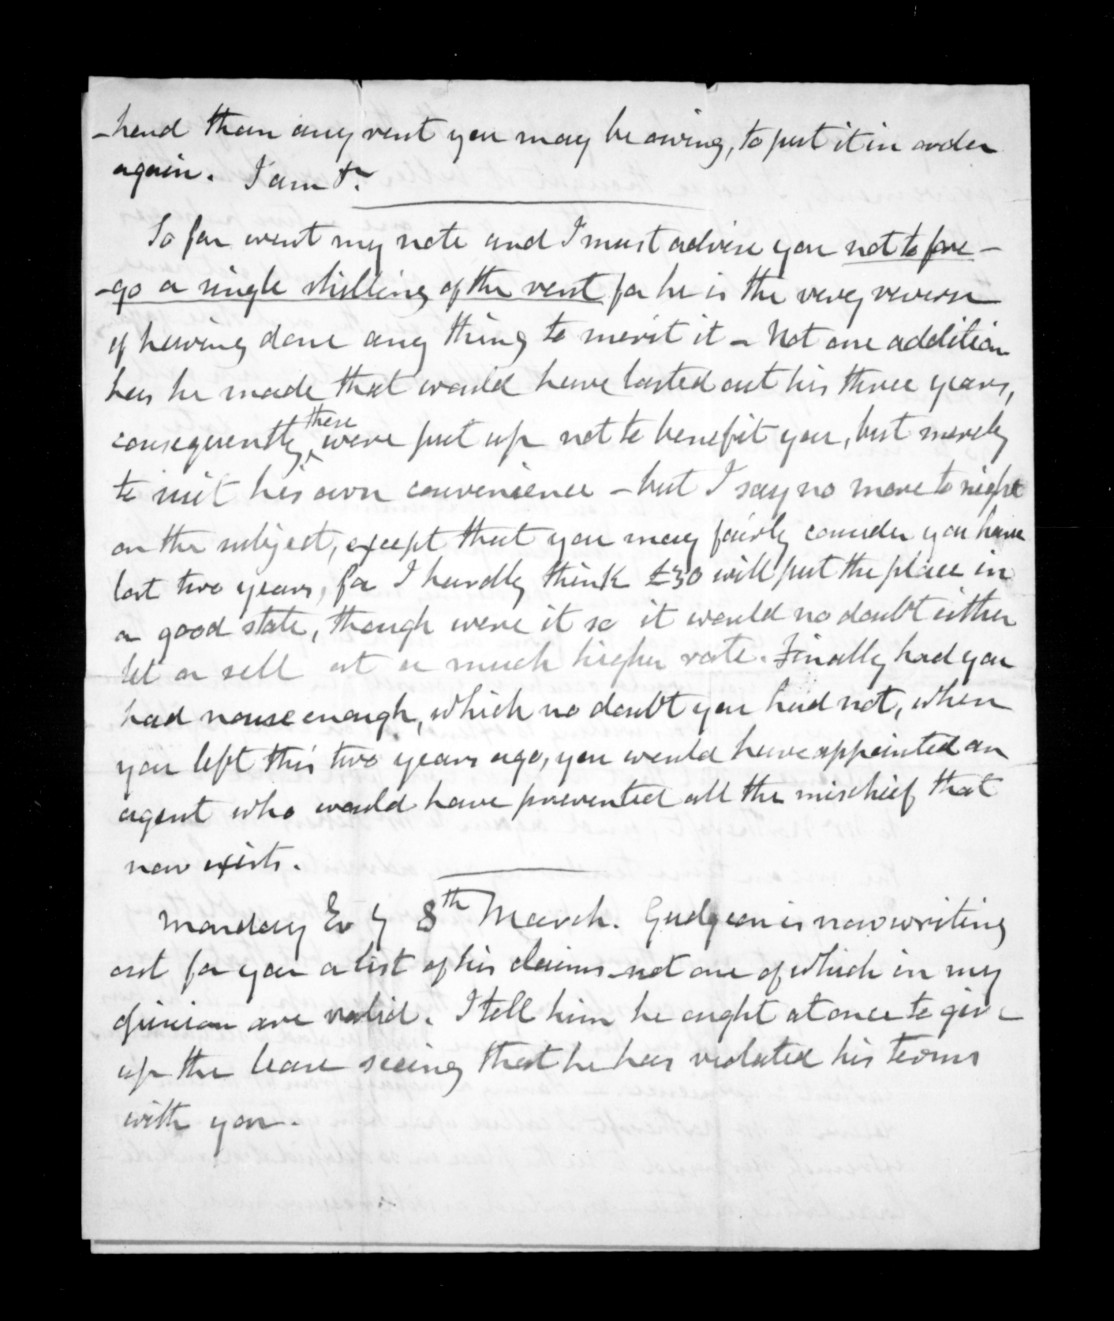 -hend than any rent you may be owing, to put it in order
again. I am &c
So far went my note and I must advise you not to fore-
-go a single shilling of the rent for he is the very reverse
of having done any thing to merit it - Not one addition
has he made that would have lasted out his three years,
consequently these were put up not to benefit you, but merely
to suit his own convenience - but I say no more to night
on the subject, except that you may fairly consider you have
lost two years, for I hardly think £30 will put the place in
a good state, though were it so it would no doubt either
let or sell at a much higher rate. Finally had you
had nouse enough, which no doubt you had not, when
you left this two years ago, you would have appointed an
agent who would have prevented all the mischief that
now exists.
Monday Ev g 8th March. Gudgeon is now writing
out for you a list of his claims not one of which in my
opinion are valid. I tell him he ought at once to give
up the lease seeing that he has violated his terms
with you.